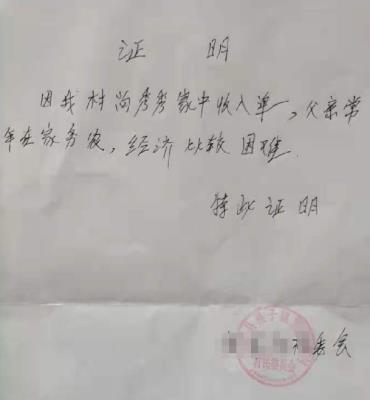 证 明
因我村尚秀秀家中收入单一,父亲常
年在家务农,经济比较困难.
特此证明
村委会